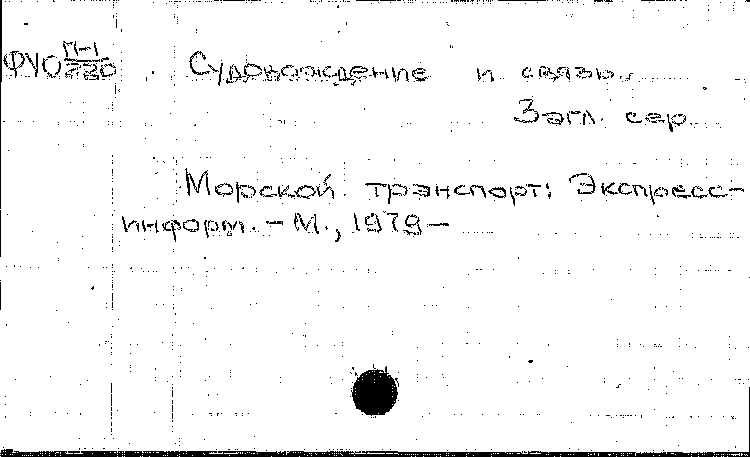 ФУО П-1/220 Судовождение и связь.
Загл. сер.
Морской транспорт: Экспресс-
информ. - М., 1979-